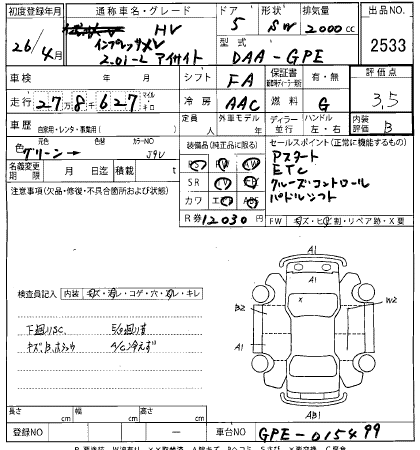 初度登録年月 通称車名・グレード ドア 形状 排気量 出品NO.
26/4月 HV 5 SW 2000cc 2533
インプレッサXV
2.0i-L アイサイト
型式 DAA-GPE
車検 年 月 シフト FA 保証書 有・無 評価点
走行 27万8千627 マイル キロ 冷房 AAC 燃料 G 3,5
車歴 自家用・レンタ・事業用( ) 定員 人 外車モデル 年 ディーラー 並行 ハンドル 左・右 内装評価 B
色 元色 色替 カラーNO
グリーン→ J9V
装備品(純正品に限る) セールスポイント(正常に機能するもの)
Pスタート
ETC
クルーズコントロール
パドルシフト
名義変更期限 月 日迄 積載 t
SR
カワ エアB ABS
注意事項(欠品・修復・不具合箇所および状態)
R券 12030円 FW キズ・ヒビ有・リペア跡・X要
検査員記入 内装 キズ・汚レ・コゲ・穴・スレ・キレ
下廻りSC
A/C冷えず
A1
X
B2
W2
A1
AB1
長さ cm 幅 cm 高さ cm
登録NO 車台NO GPE-015499